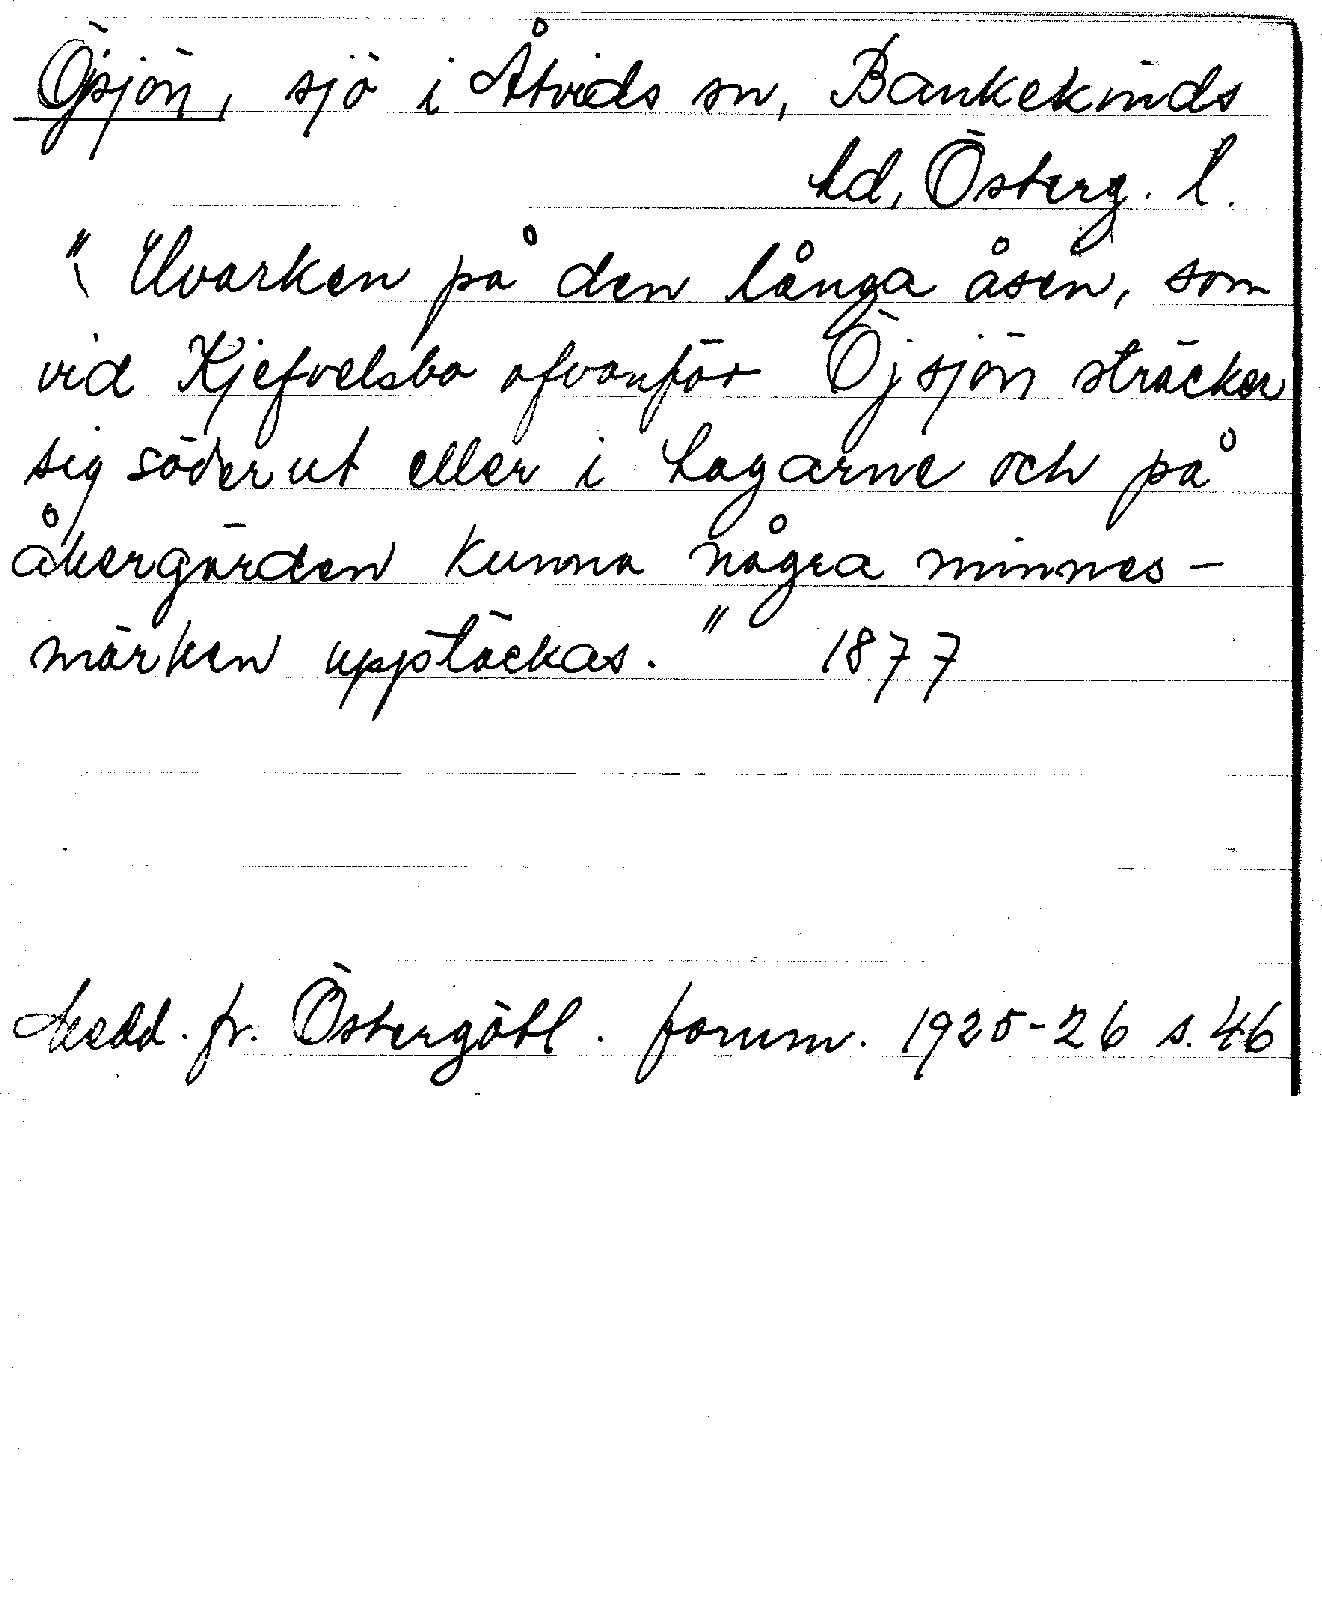 Öjsjön, sjö i Åtvids sn, Bankekinds
hd, Österg. l.
"Hvarken på den långa åsen, som
vid Kjefvelsbo ofvanför Öjsjön sträcker
sig söderut eller i hagarne och på
åkergärden kunna några minnes-
märken upptäckas." 1877
Medd. fr. Östergötl. fornm. 1925-26 s. 46